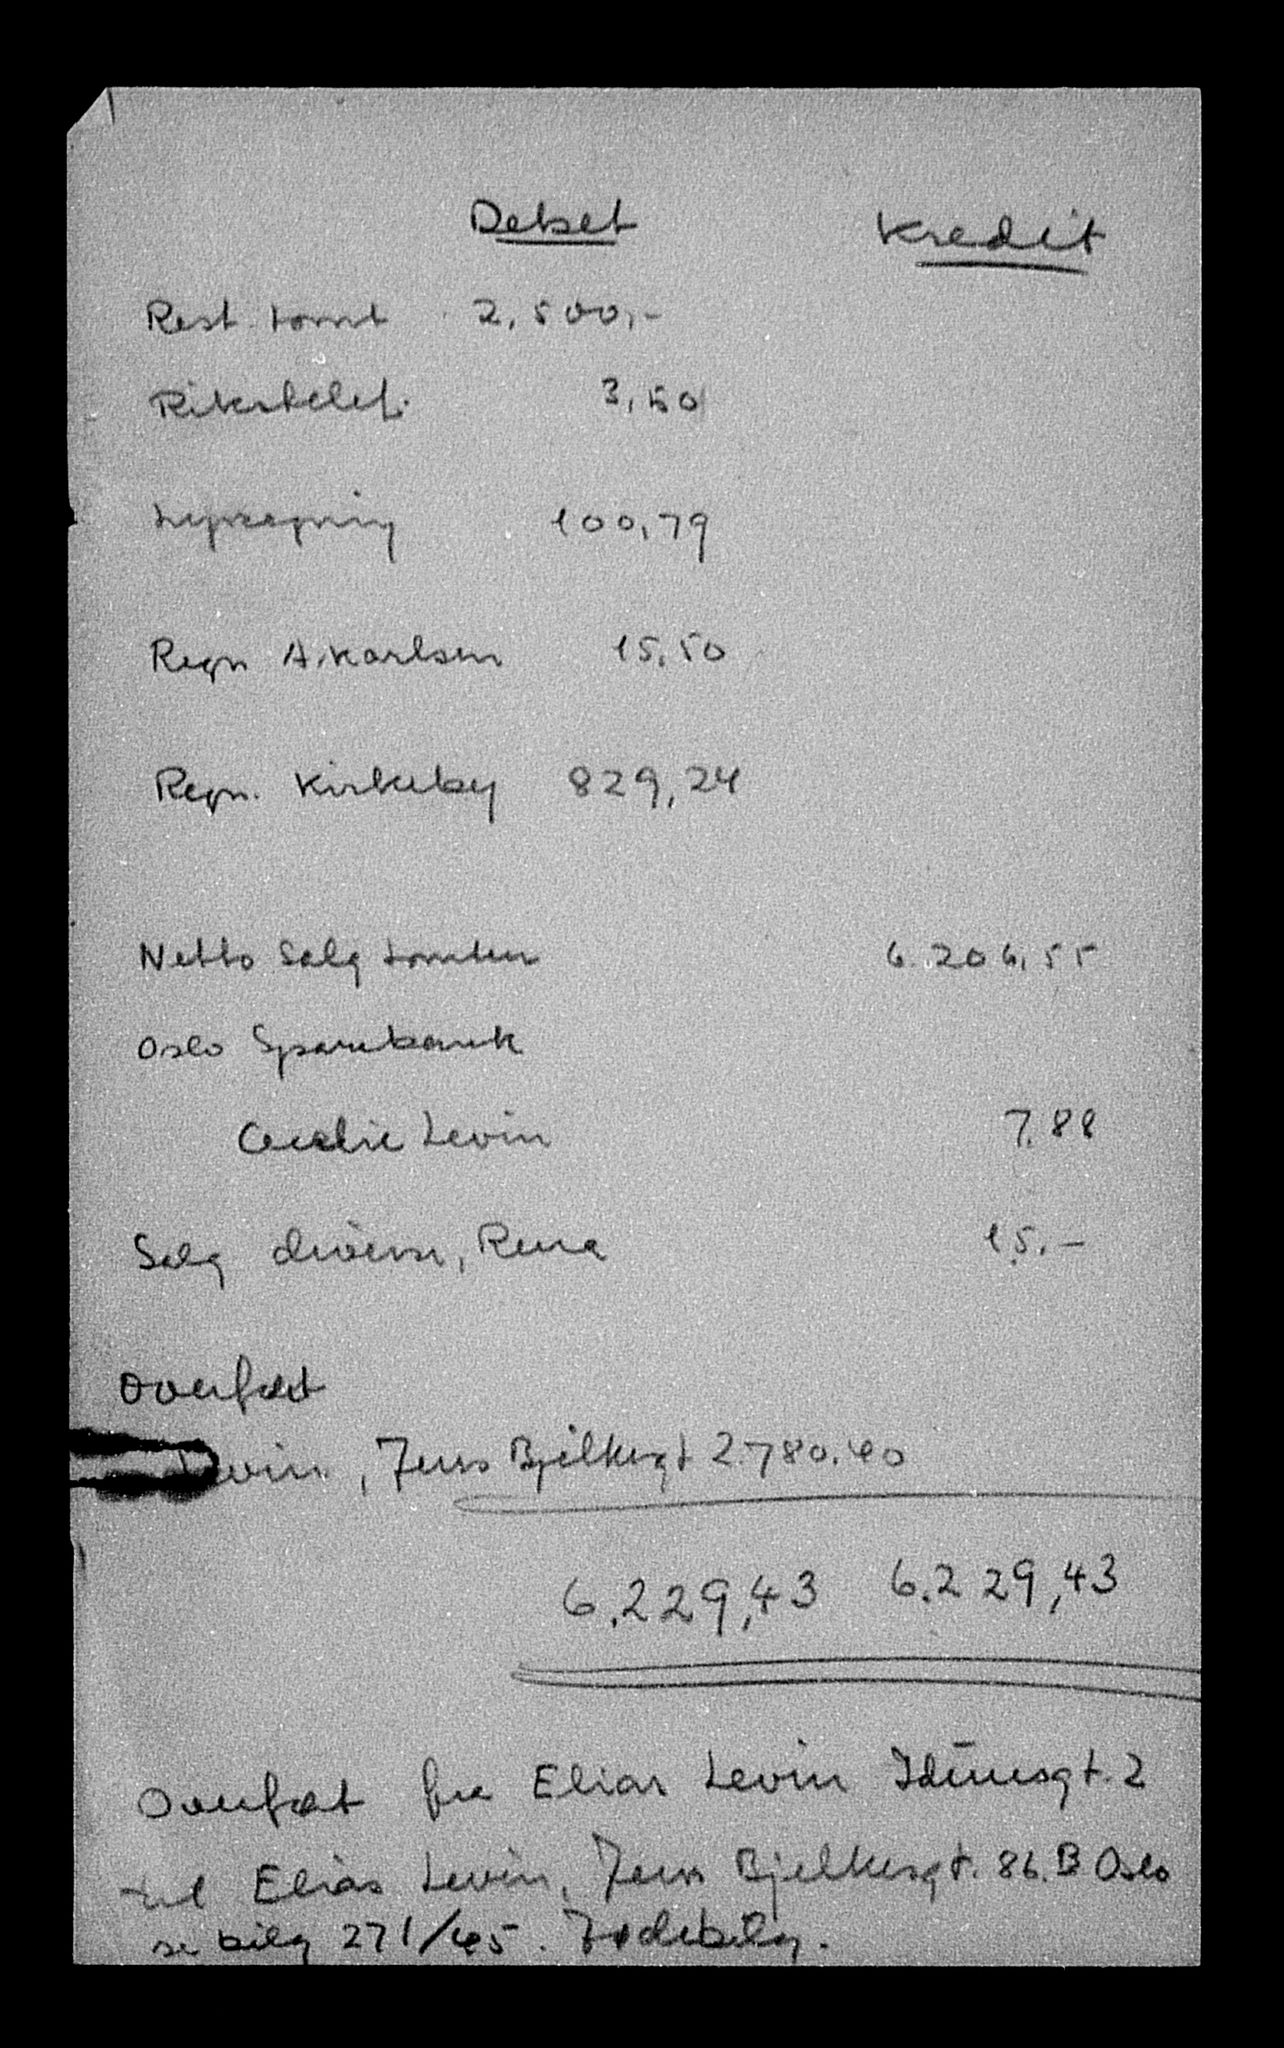 Debet Kredit
Rest tomt 2,500,-
Rikstelef. 3,50
Lysregning 100,79
Regn A. Karlsen 15,50
Regn. Kirkeby 829,24
Netto Salg tomten 6.206,55
Oslo Sparebank
Cecelie Levin 7.88
Salg diverse, Rena 15.-
Overført
Levin, Jens Bjelkesgt 2.780.40
6.229,43 6.229,43
Overført fra Elias Levin Idunsgt. 2
til Elias Levin, Jens Bjelkesgt. 86.B Oslo
se bilag 271/45. Jødebilag.